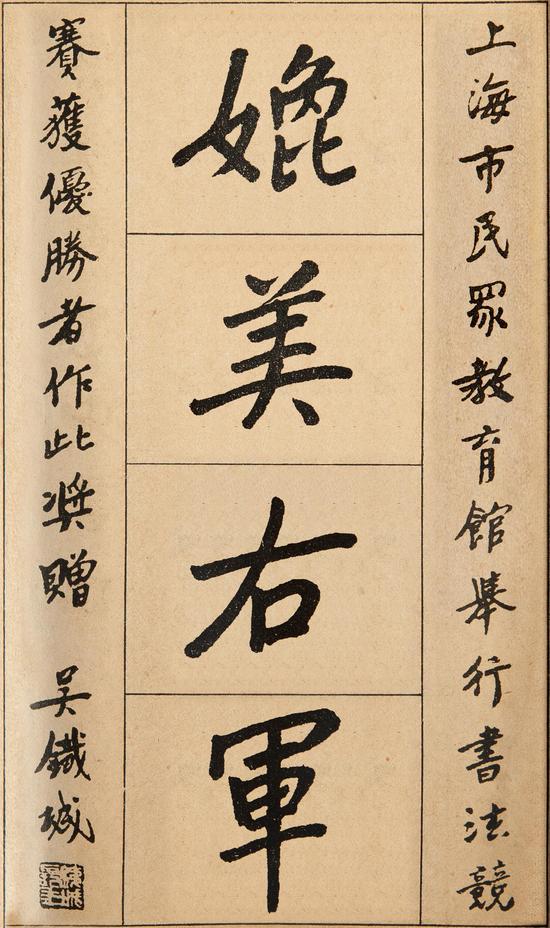 上海市民眾教育館舉行書法競
媲美右軍
賽獲優勝者作此奬贈 吳鐵城